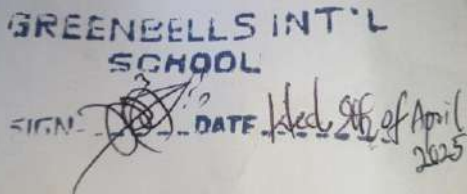 GREENBELLS INT'L
SCHOOL
SIGN DATE Wed. 9th of April
2025